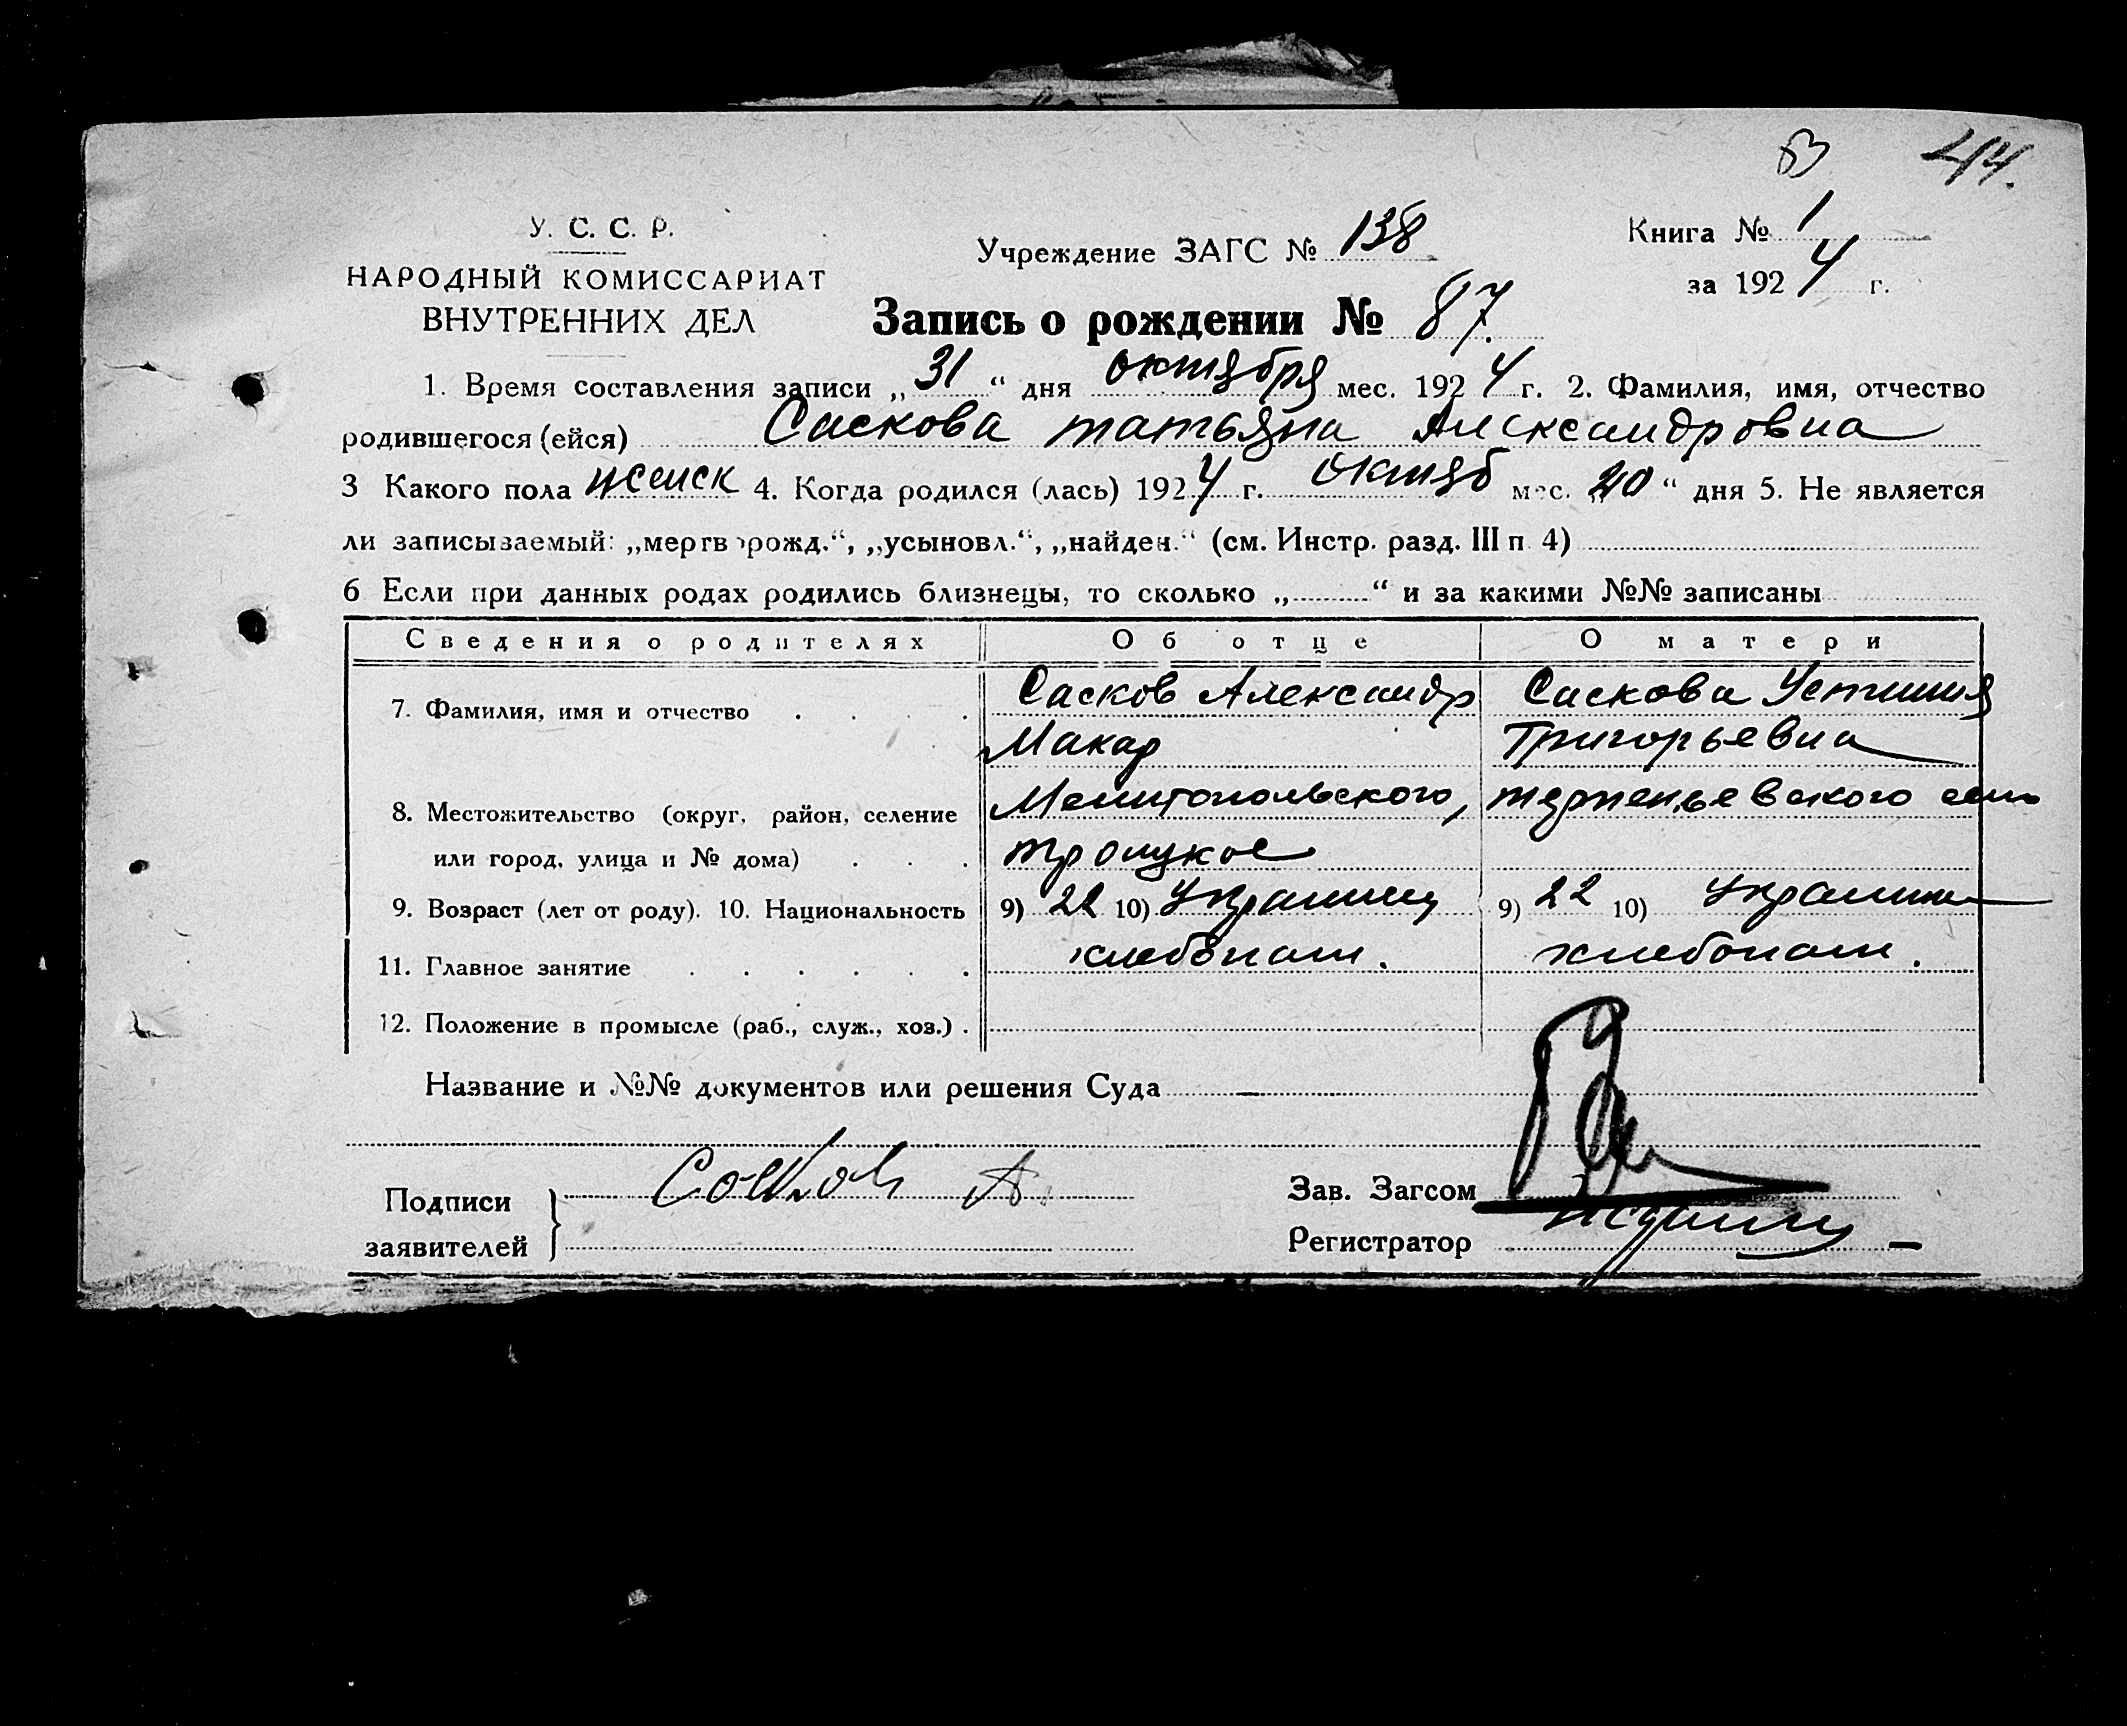 83 44.
У. С. С. Р.
НАРОДНЫЙ КОМИССАРИАТ
ВНУТРЕННИХ ДЕЛ
Учреждение ЗАГС № 138
Книга № 1
за 1924 г.
Запись о рождении № 87.
1. Время составления записи „31“ дня октября мес. 1924 г. 2. Фамилия, имя, отчество
родившегося (ейся) Саскова Татьяна Александровна
3 Какого пола женск 4. Когда родился (лась) 1924 г. октяб мес. „20“ дня 5. Не является
ли записываемый: „мертворожд.“, „усыновл.“, „найден.“ (см. Инстр. разд. III п. 4)
6 Если при данных родах родились близнецы, то сколько „ “ и за какими №№ записаны
Сведения о родителях Об отце О матери
7. Фамилия, имя и отчество Сасков Александр Саскова Устиния
Макар Григорьевна
8. Местожительство (округ, район, селение Мелитопольского, терпеньевского
или город, улица и № дома) троицкое
9. Возраст (лет от роду). 10. Национальность 9) 22 10) Украинец 9) 22 10) Украинка
11. Главное занятие хлебопаш. хлебопаш.
12. Положение в промысле (раб., служ., хоз.)
Название и №№ документов или решения Суда —
Подписи заявителей А.
Зав. Загсом
Регистратор